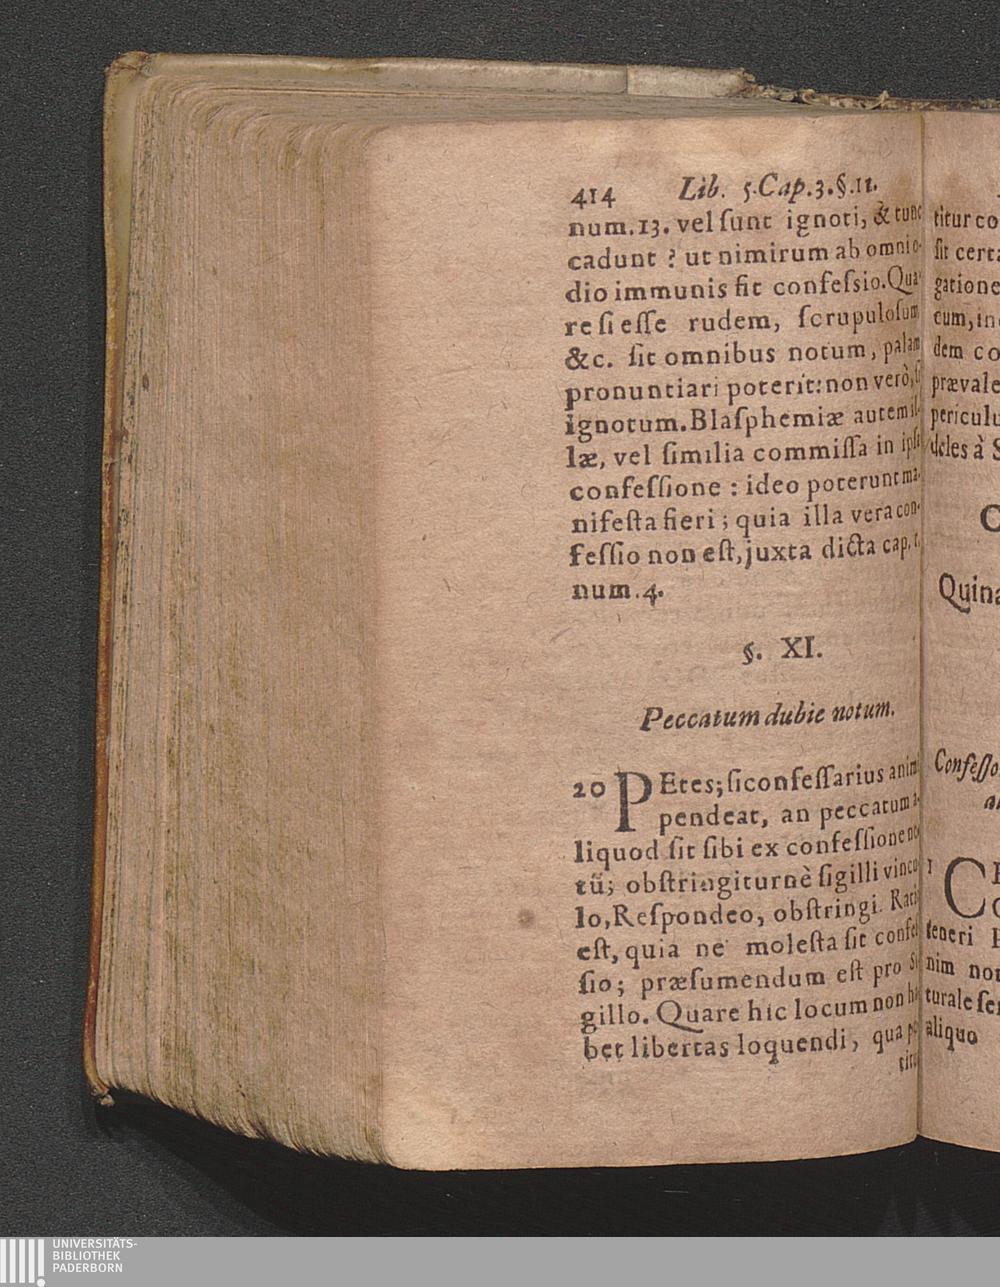 414 Lib. 5. Cap. 3. §. 11.
num. 13. vel ſunt ignoti, & tunc
cadunt ? ut nimirum ab omni o-
dio immunis ſit confeſsio. Qua-
re ſi eſſe rudem, ſcrupuloſum
&c. ſit omnibus notum, palam
pronuntiari poterit: non verò, ſi
ignotum. Blaſphemiæ autem il-
læ, vel ſimilia commiſſa in ipſa
confeſſione : ideo poterunt ma-
nifeſta fieri ; quia illa vera con-
feſſio non eſt, juxta dicta cap. 1.
num. 4.
§. XI.
Peccatum dubie notum.
20 PEtes; ſi confeſſarius animi
pendeat, an peccatum a-
liquod ſit ſibi ex confeſſione no
tū; obſtringiturnè ſigilli vincu
lo, Reſpondeo, obſtringi. Rati
eſt, quia ne moleſta ſit confeſ
ſio; præſumendum eſt pro Si
gillo. Quare hic locum non ha
bet libertas loquendi, qua po
titu
titur co
ſit certa
gatione
cum, in
dem co
prævale
periculu
deles à S
C
Quina
Confeſſo
1 C
teneri
nim non
turale ſe
aliquo
UNIVERSITÄTS-
BIBLIOTHEK
PADERBORN